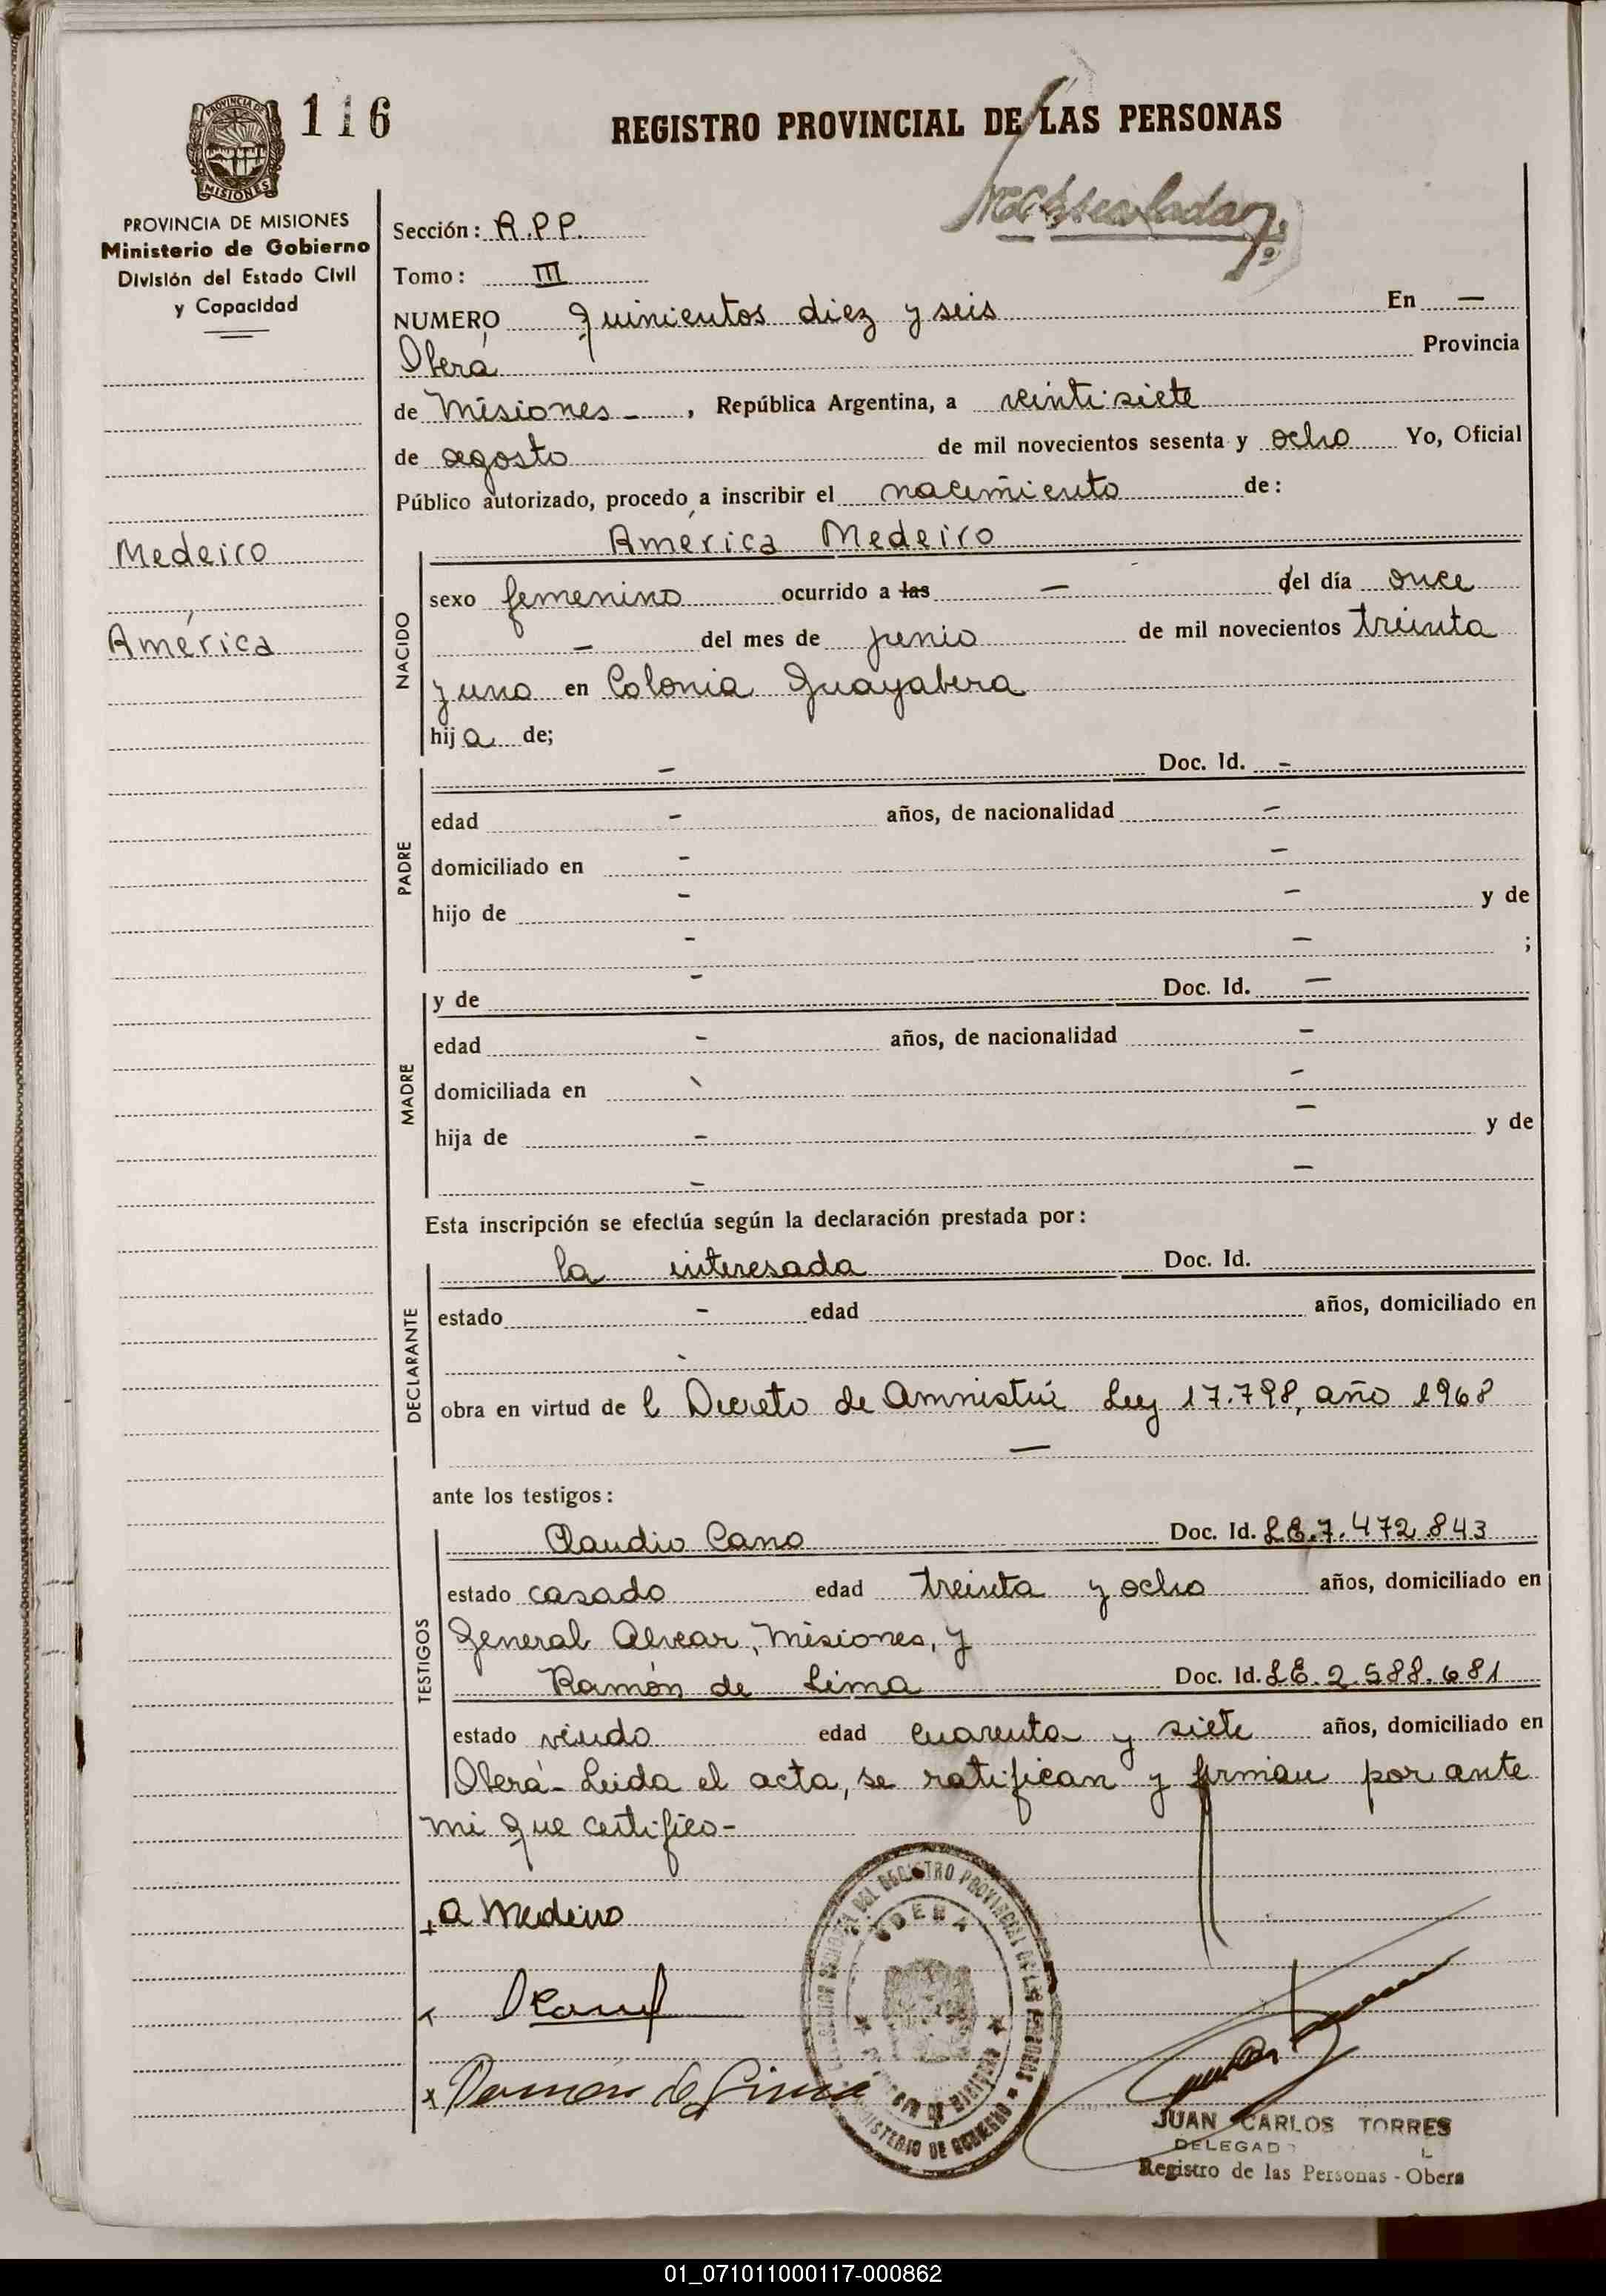 116
REGISTRO PROVINCIAL DE LAS PERSONAS
PROVINCIA DE
MISIONES
PROVINCIA DE MISIONES
Ministerio de Gobierno
División del Estado Civil
y Capacidad
Medeiro
América
Sección: R.P.P.
Tomo: III
NUMERO quinientos diez y seis En —
Oberá Provincia
de Misiones - , República Argentina, a veintisiete
de agosto de mil novecientos sesenta y ocho Yo, Oficial
Público autorizado, procedo a inscribir el nacimiento de:
América Medeiro
NACIDO
sexo femenino ocurrido a las — del día once
— del mes de junio de mil novecientos treinta
y uno en Colonia Guayabera
hija de;
PADRE
— Doc. Id. —
edad — años, de nacionalidad —
domiciliado en — —
hijo de — — y de
— — ;
MADRE
y de — Doc. Id. —
edad — años, de nacionalidad —
domiciliada en — —
hija de — — y de
— —
Esta inscripción se efectúa según la declaración prestada por:
DECLARANTE
la interesada Doc. Id.
estado — edad años, domiciliado en
obra en virtud de l Decreto de Amnistía Ley 17.798, año 1968
—
ante los testigos:
TESTIGOS
Claudio Cano Doc. Id. LE.7.472.843
estado casado edad treinta y ocho años, domiciliado en
General Alvear, Misiones, y
Ramón de Lima Doc. Id. LE.2.588.681
estado viudo edad cuarenta y siete años, domiciliado en
Oberá- Leida el acta, se ratifican y firman por ante
mi que certifico-
+ A Medeiro
x Ramón de Lima
OBERA
MINISTERIO DE GOBIERNO
JUAN CARLOS TORRES
DELEGADO
Registro de las Personas - Obera
01_071011000117-000862